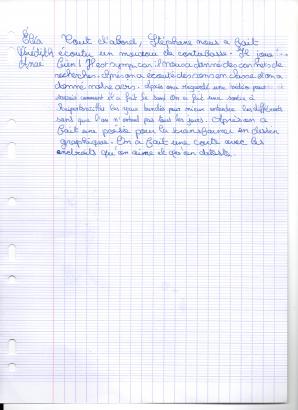 Léa Tout d'abord, Stéphane nous a fait
écouter un morceau de contrebasse. Il joue
bien ! Il est sympa car il nous a donné des carnets de
recherches. Après on a écouté des sons en classe et on a
donné notre avis. Après on a regardé une vidéo pour
savoir comment il a fait le son. On a fait une sortie à
les yeux bandés pour mieux entendre les différents
sons que l'on n'entend pas tous les jours. Après on a
fait une poésie pour la transformer en dessin
graphique. On a fait une carte avec les
endroits qu'on aime et qu'on déteste.